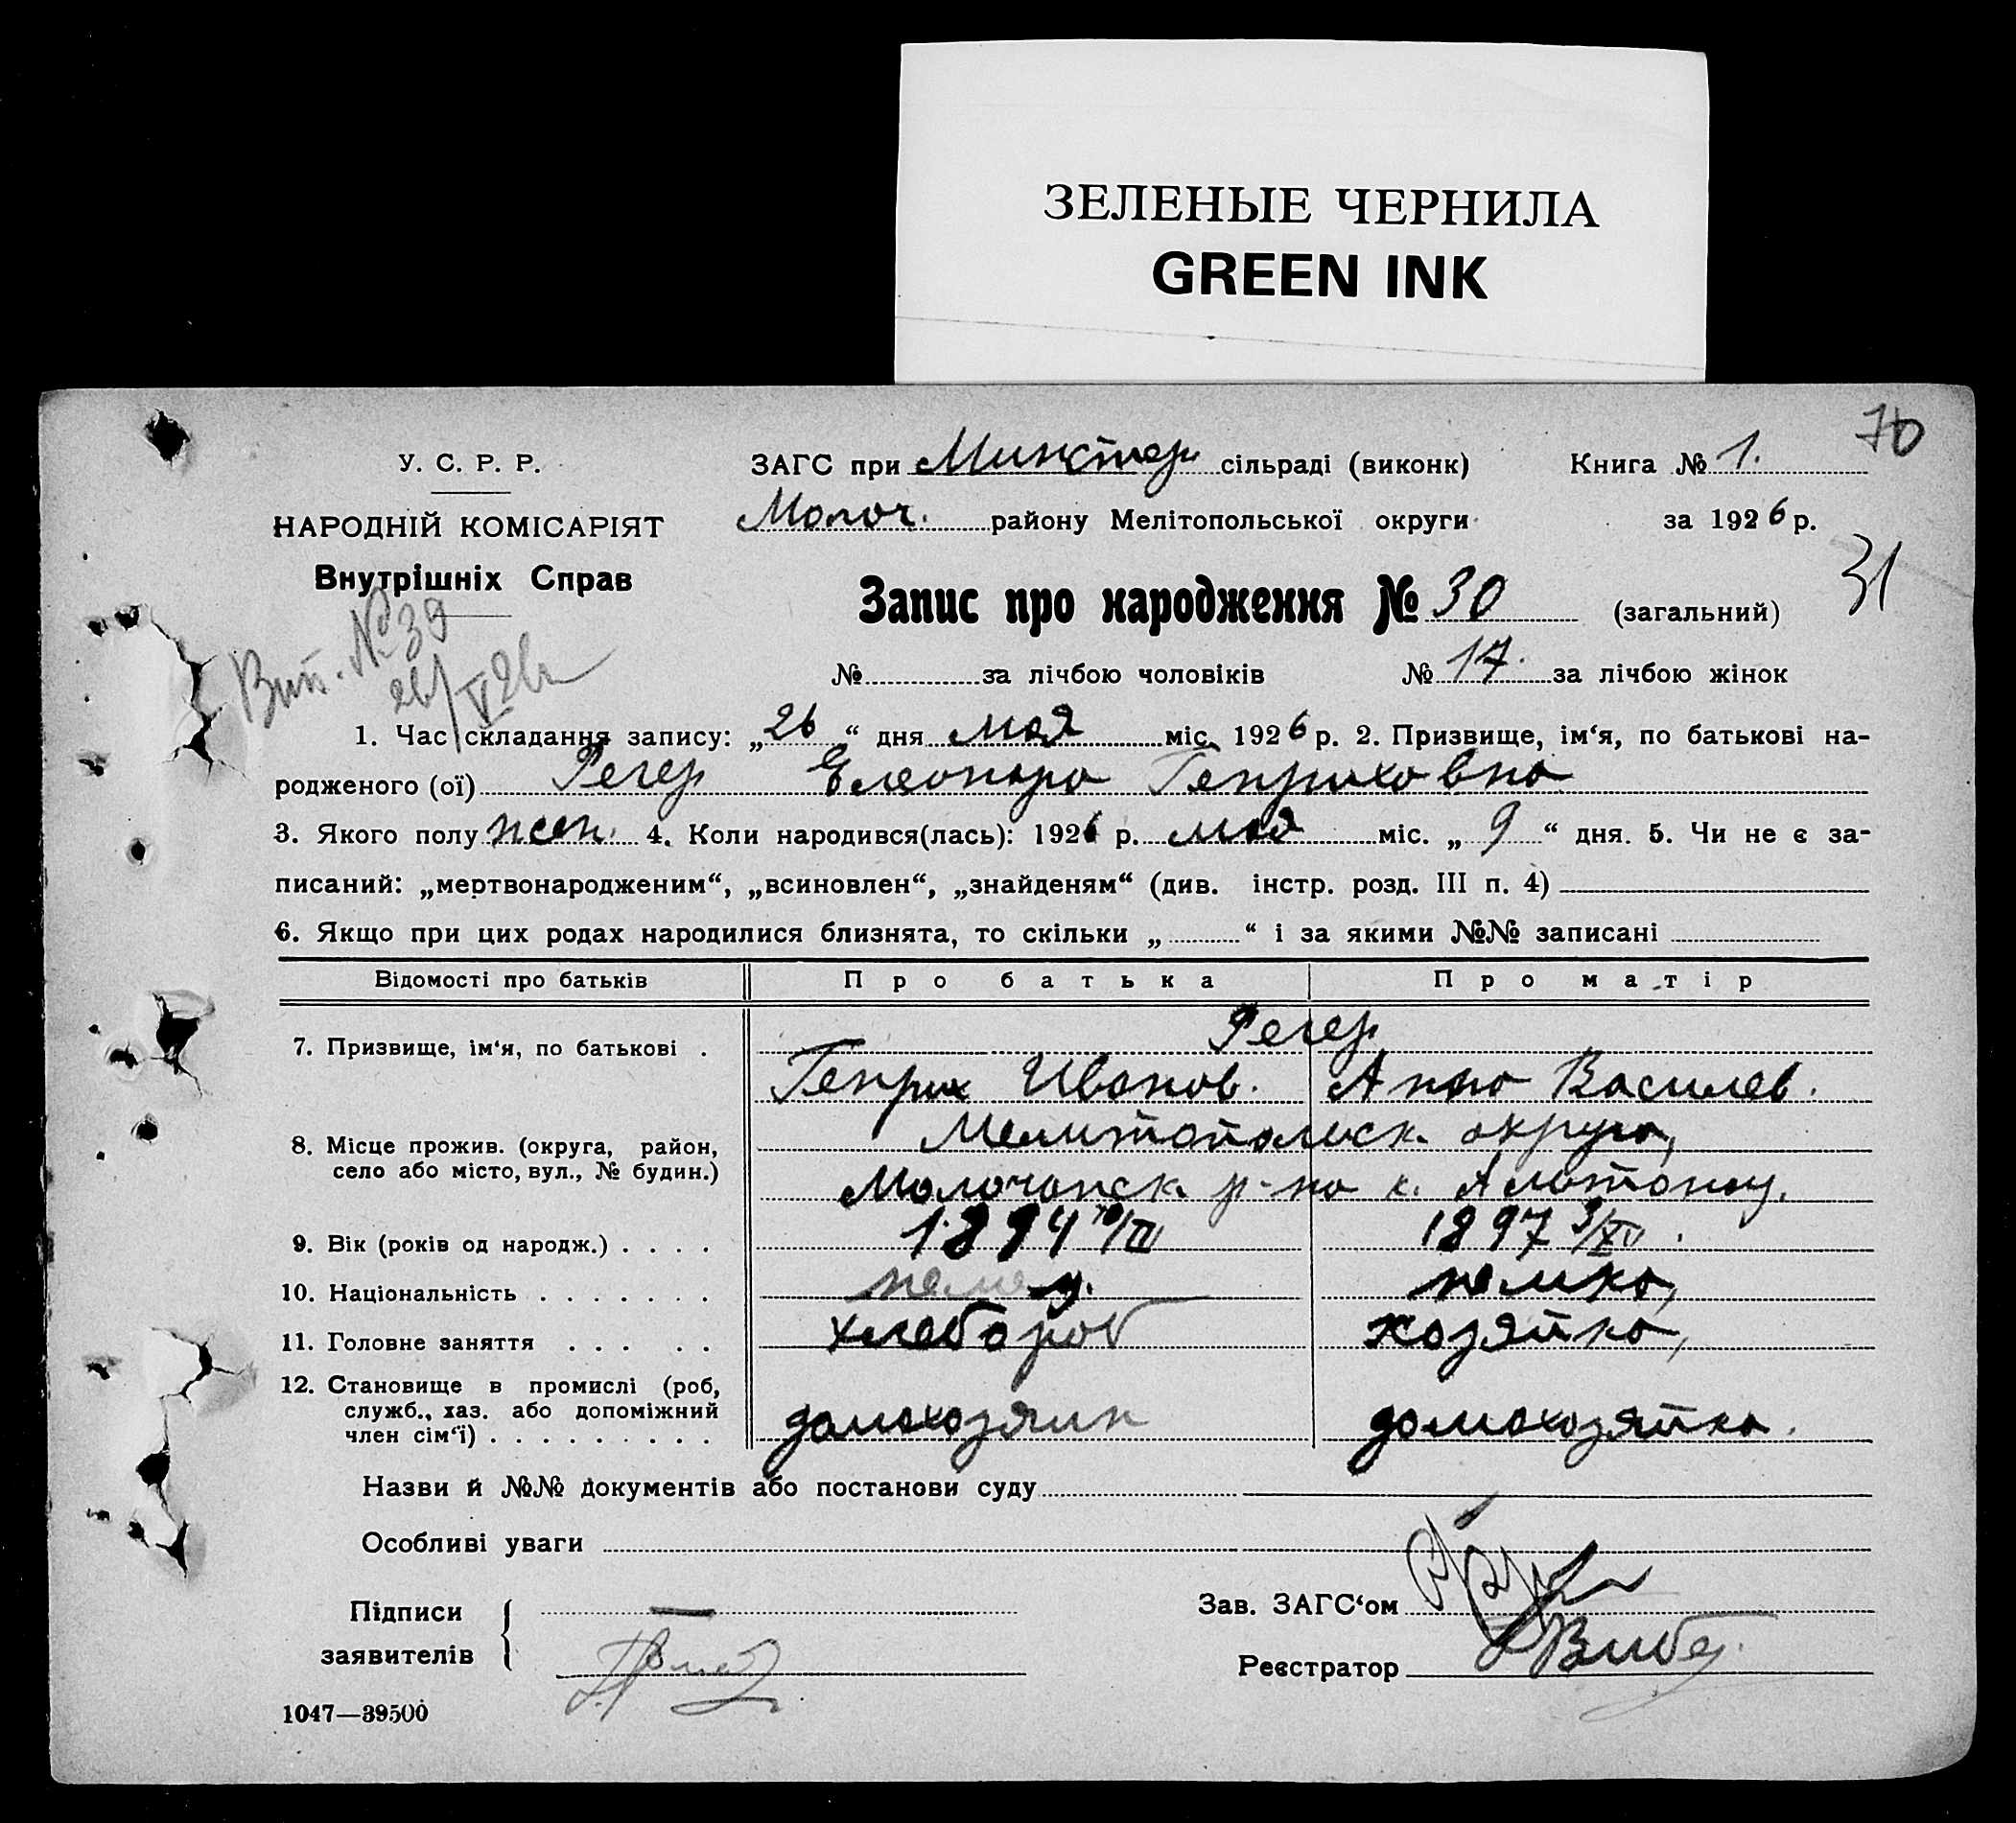 ЗЕЛЕНЫЕ ЧЕРНИЛА
GREEN INK
70
У. С. Р. Р.
НАРОДНІЙ КОМІСАРІЯТ
Внутрішніх Справ
Вип. №39
26/V 26
ЗАГС при Минстер. сільраді (виконк) Книга № 1.
Молоч. району Мелітопольської округи за 1926 р.
31
Запис про народження № 30 (загальний)
№ за лічбою чоловіків № 17. за лічбою жінок
1. Час складання запису: „26“ дня мая міс. 1926 р. 2. Призвище, ім‘я, по батькові на-
родженого (ої) Регер Елеонора Генриховна
3. Якого полу жен. 4. Коли народився(лась): 1926 р. мая міс. „9“ дня. 5. Чи не є за-
писаний: „мертвонародженим“, „всиновлен“, „знайденям“ (див. інстр. розд. III п. 4)
6. Якщо при цих родах народилися близнята, то скільки „ “ і за якими №№ записані
Відомості про батьків Про батька Про матір
7. Призвище, ім‘я, по батькові . Регер
Генрих Иванов. Анна Василев.
8. Місце прожив. (округа, район, Мелитопольск. округа,
село або місто, вул., № будин.) Молочанск. р-на к. Альтонау.
9. Вік (років од народж.) . . . . 1894 /III 1897 3/XII.
10. Національність . . . . . . . немец. немка,
11. Головне заняття . . . . . хлебороб хозяйка,
12. Становище в промислі (роб,
служб., хаз. або допоміжний
член сім‘ї) . . . . . . . . . домохозяин домохозяйка.
Назви й №№ документів або постанови суду
Особливі уваги
Підписи
заявителів
Зав. ЗАГС‘ом
Реєстратор Вибе
1047—39500